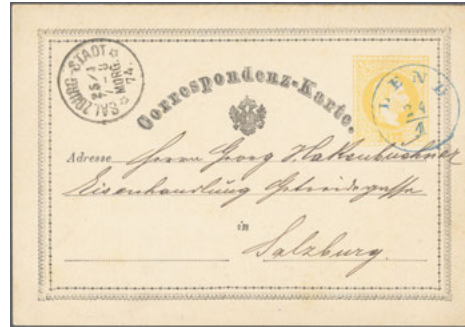 SALZBURG-STADT
25/1
7-8
MORG.
74.
LEND
24/1
Correspondenz-Karte.
Adresse Herrn Georg Hakenbuchner
Eisenhandlung Getreidegasse
in
Salzburg.